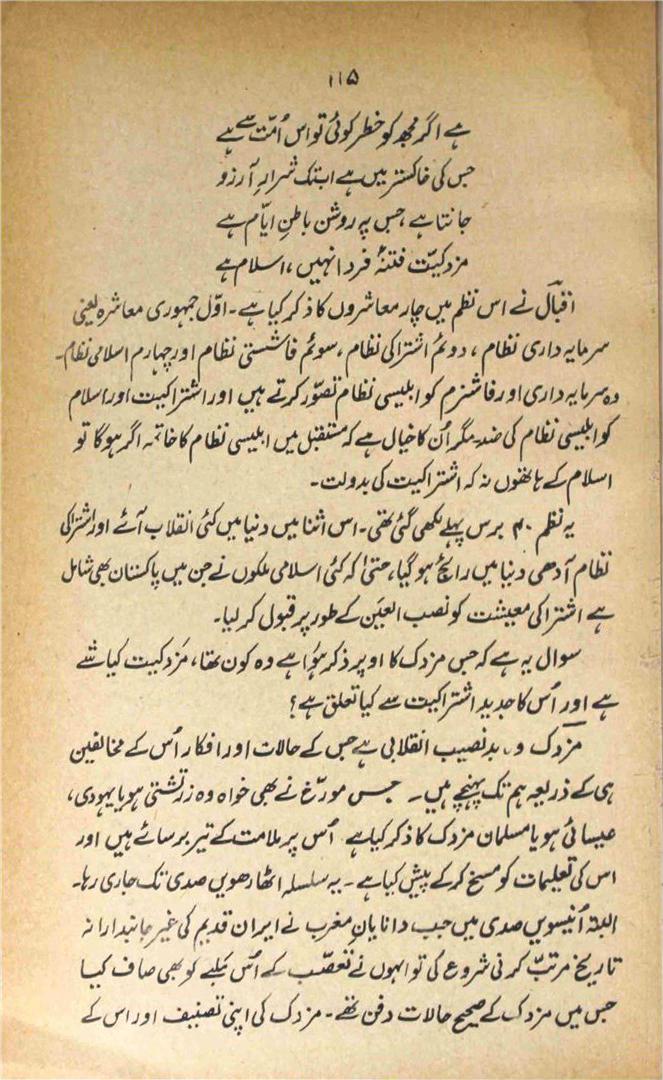 ۱۱۵
ہے اگر مجھ کو خطر کوئی تو اس اُمّت سے ہے
جس کی خاکستر میں ہے ابتک شرارِ آرزو
جانتا ہے، جس پہ روشن باطنِ ایّام ہے
مزدکیّت فتنۂ فردا نہیں، اسلام ہے
اقبالؔ نے اس نظم میں چار معاشروں کا ذکر کیا ہے۔ اوّل جمہوری معاشرہ یعنی
سرمایہ داری نظام، دوئم اشتراکی نظام، سوئم فاشستی نظام اور چہارم اسلامی نظام۔
وہ سرمایہ داری اور فاشزم کو ابلیسی نظام تصوّر کرتے ہیں اور اشتراکیت اور اسلام
کو ابلیسی نظام کی ضد مگر اُن کا خیال ہے کہ مستقبل میں ابلیسی نظام کا خاتمہ اگر ہوگا تو
اسلام کے ہاتھوں نہ کہ اشتراکیت کی بدولت۔
یہ نظم ۴۰ برس پہلے لکھی گئی تھی۔ اس اثنا میں دنیا میں کئی انقلاب آئے اور اشتراکی
نظام آدھی دنیا میں رائج ہو گیا، حتیٰ کہ کئی اسلامی ملکوں نے جن میں پاکستان بھی شامل
ہے اشتراکی معیشت کو نصب العین کے طور پر قبول کر لیا۔
سوال یہ ہے کہ جس مزدک کا اوپر ذکر ہوٗا ہے وہ کون تھا، مَزدکیت کیا شے
ہے اور اُس کا جدید اشتراکیت سے کیا تعلق ہے؟
مزدک وہ بدنصیب انقلابی ہے جس کے حالات اور افکار اُس کے مخالفین
ہی کے ذریعہ ہم تک پہنچے ہیں۔ جس مورّخ نے بھی خواہ وہ زرتشتی ہو یا یہودی،
عیسائی ہو یا مسلمان مزدک کا ذکر کیا ہے اُس پر ملامت کے تیر برسائے ہیں اور
اس کی تعلیمات کو مسخ کر کے پیش کیا ہے۔ یہ سلسلہ اٹھارھویں صدی تک جاری رہا۔
البتہ اُنیسویں صدی میں جب دانایانِ مغرب نے ایران قدیم کی غیر جانبدارانہ
تاریخ مرتّب کرنی شروع کی تو انہوں نے تعصّب کے اُس ملبے کو بھی صاف کیا
جس میں مزدک کے صحیح حالات دفن تھے۔ مزدک کی اپنی تصنیف اور اس کے